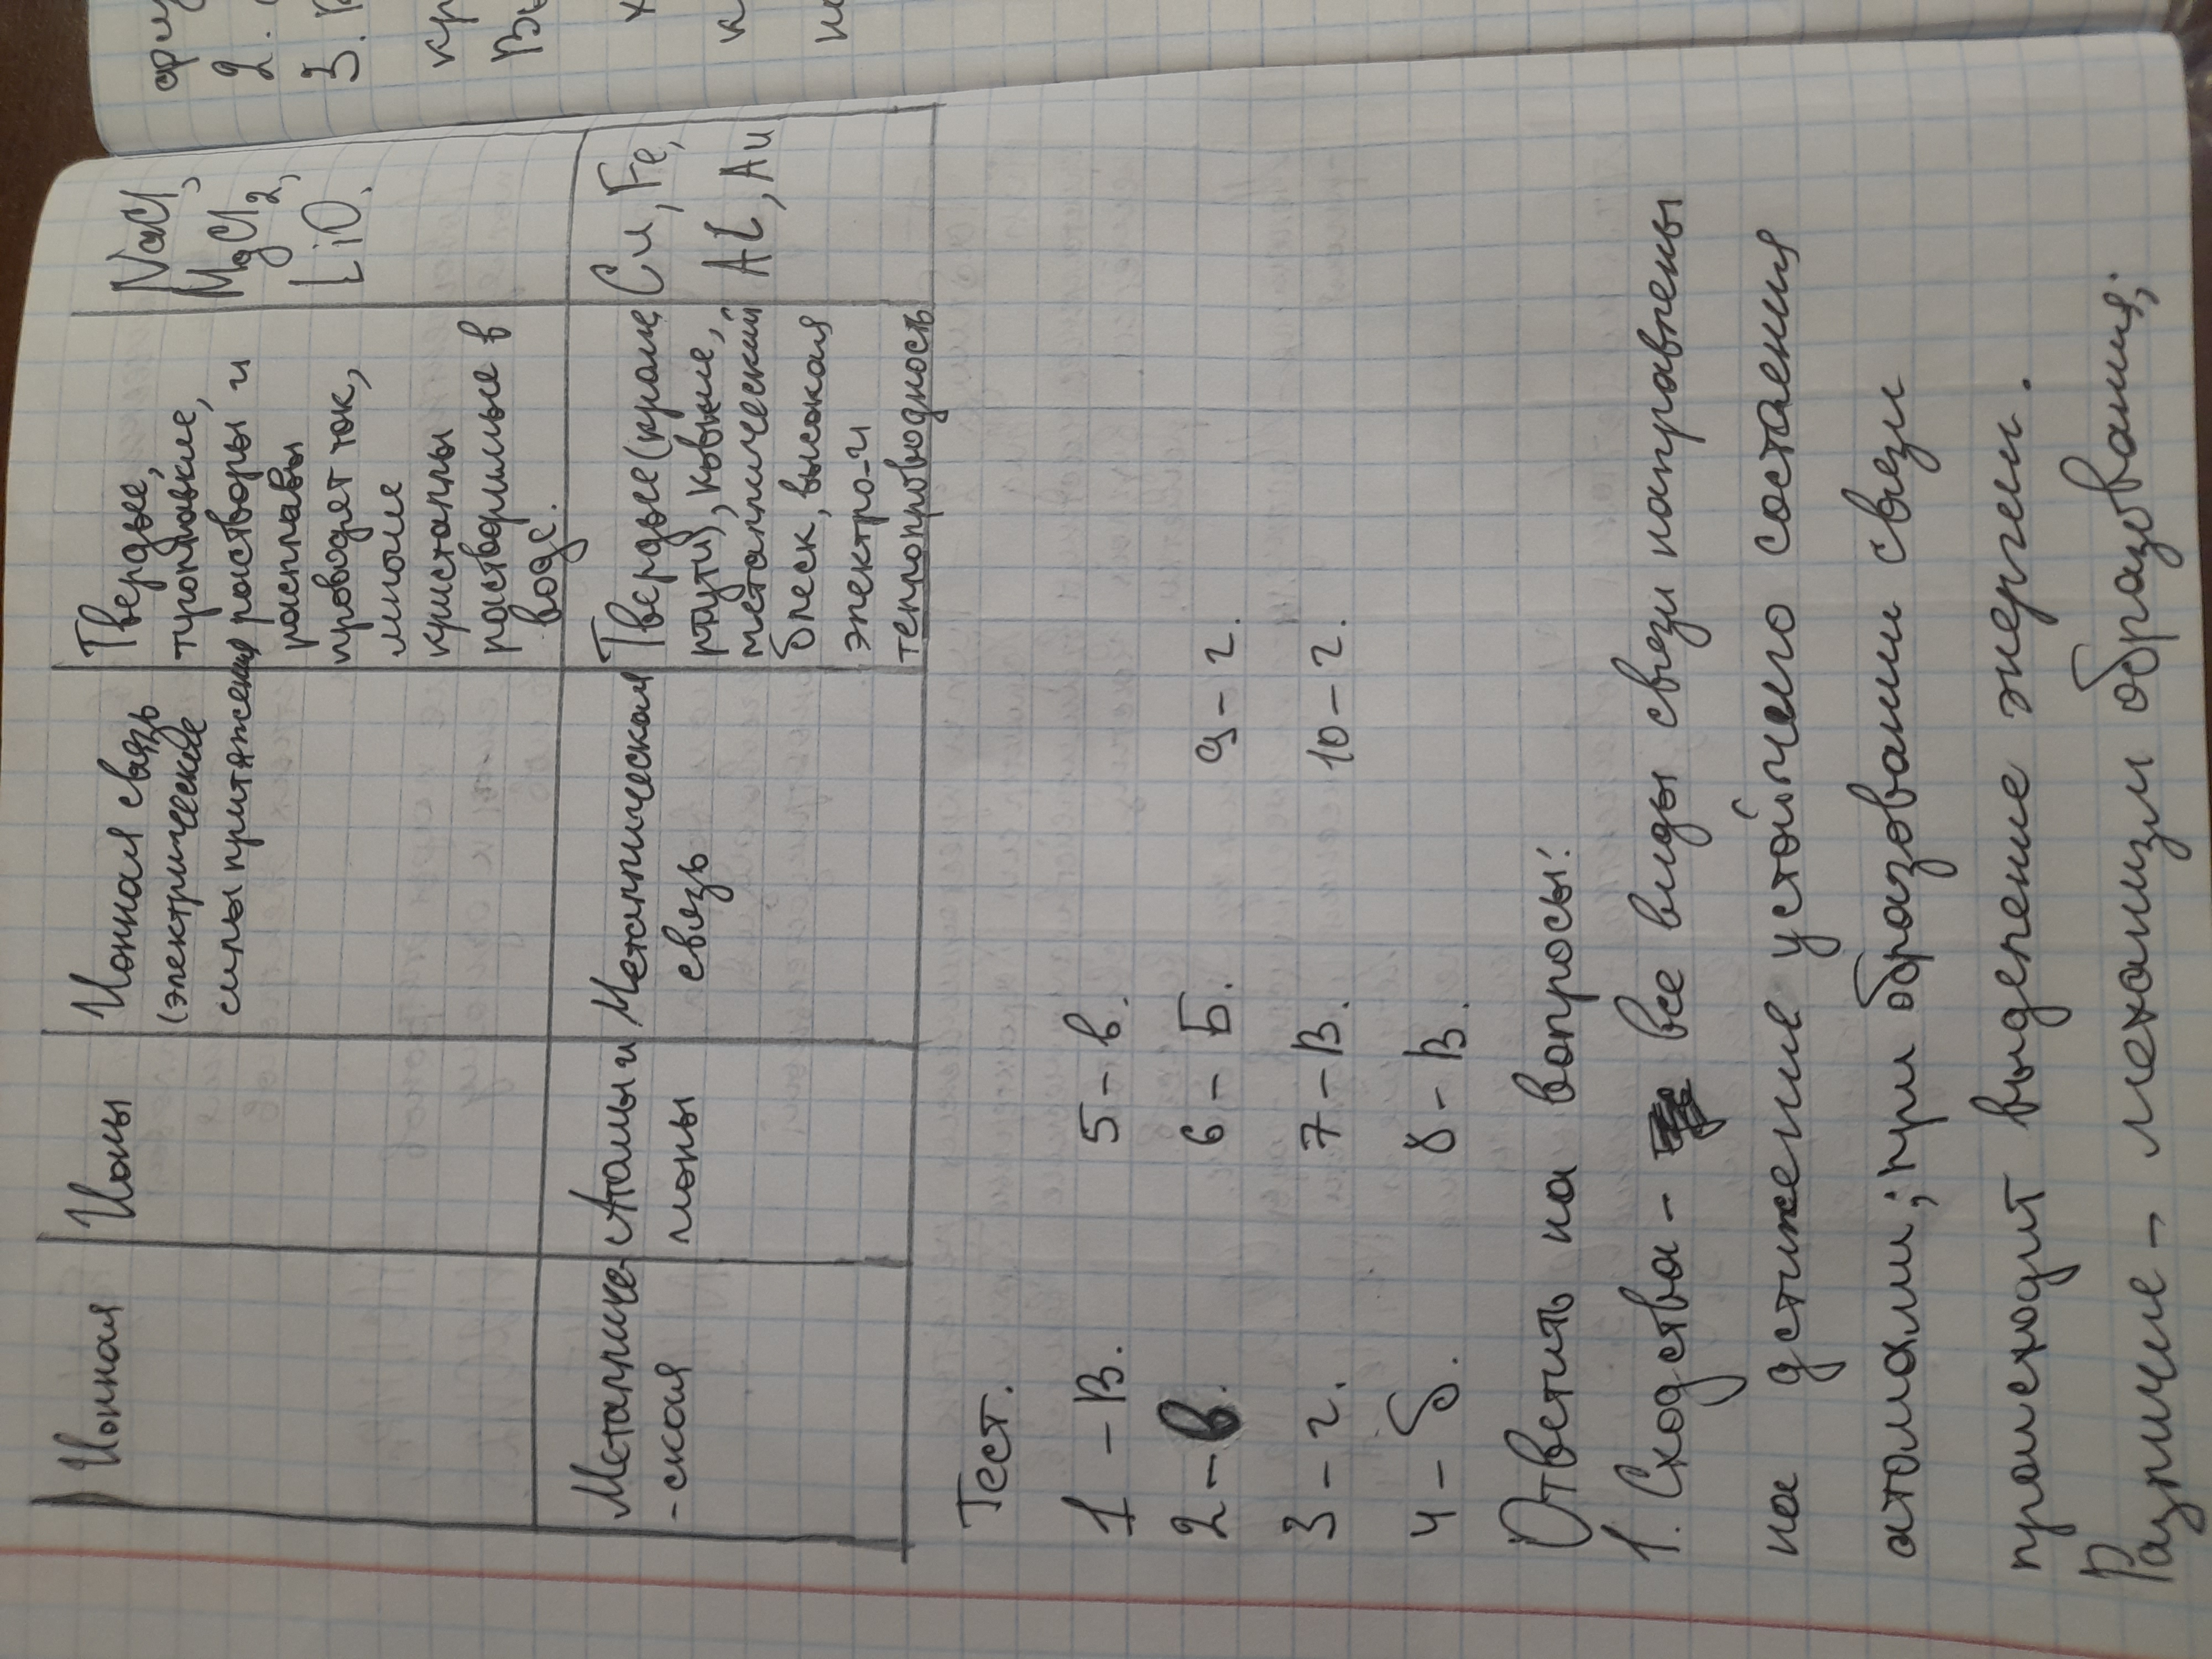 Ионная
Ионы
Ионная связь
(электрическое
силы притяжения
Твердые,
тугоплавкие,
растворы и
расплавы
проводят ток,
многие
кристаллы
растворимые в
воде.
NaCl,
MgCl2,
LiO.
Металличе-
-ская
Атомы и
ионы
Металлическая
связь
Твердые (кроме
ртути), ковкие,
металлический
блеск, высокая
электро-и
теплопроводность
Cu, Fe,
Al, Au
Тест.
1 - В.
2 - в.
3 - г.
4 - б.
5 - в.
6 - Б.
7 - В.
8 - В.
9 - г.
10 - г.
Ответить на вопросы:
1. Сходства - все виды связи направлены
на дстижение устойчего состаения
атомами; при образовании связи
происходит выделение энергии.
Различие - механизм образования;
2.
3.